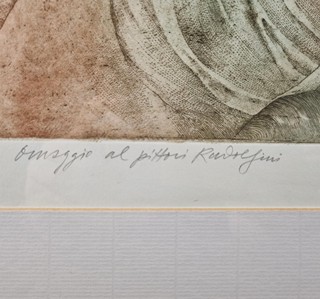 Omaggio al pittori Rudolfini